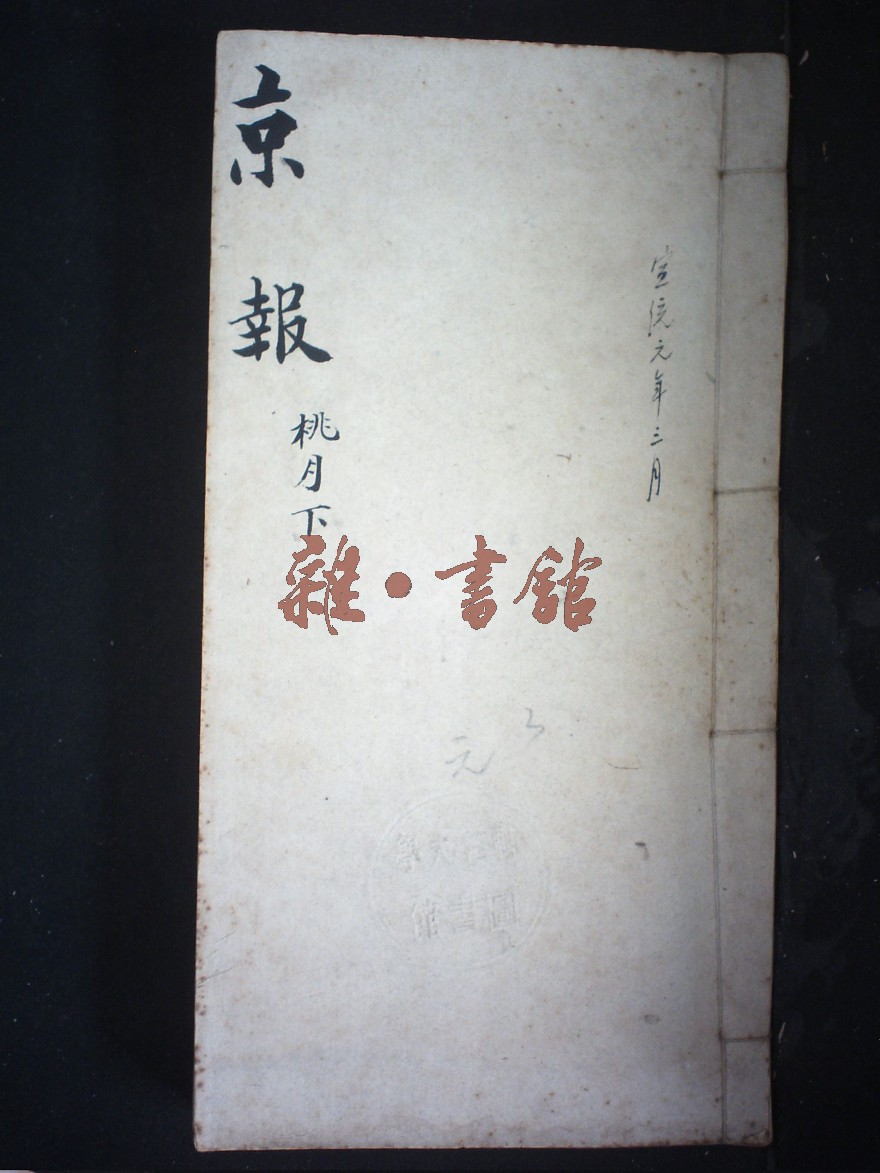 宣統元年三月
京報
桃月下
雜·書舘
元
圖書館